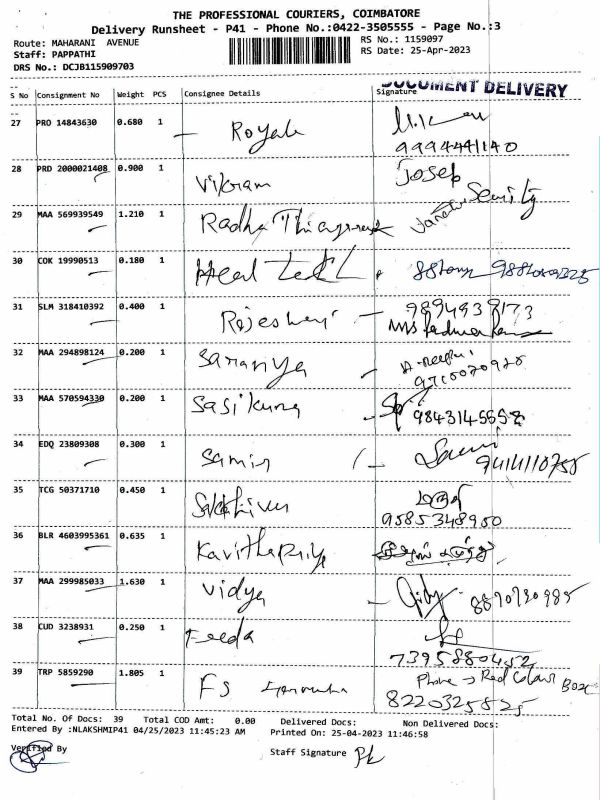 THE PROFESSIONAL COURIERS, COIMBATORE
Delivery Runsheet - P41 - Phone No.:0422-3505555 - Page No.:3
Route: MAHARANI AVENUE RS No.: 1159097
Staff: PAPPATHI RS Date: 25-Apr-2023
DRS No.: DCJB115909703
DOCUMENT DELIVERY
S No Consignment No Weight PCS Consignee Details Signature
27 PRO 14843630 0.680 1 Royale
9994441140
28 PRD 2000021408 0.900 1 Vikram Josep
29 MAA 569939549 1.210 1 Radha Security
30 COK 19990513 0.180 1
31 SLM 318410392 0.400 1 9894939173
32 MAA 294898124 0.200 1 Saranya
9710070928
33 MAA 570594330 0.200 1 Sasikumar 9843145658
34 EDQ 23809308 0.300 1
35 TCG 50371710 0.450 1
9585348950
36 BLR 4603995361 0.635 1 Kavithapriya
37 MAA 299985033 1.630 1 Vidya
38 CUD 3238931 0.250 1 Feeda
7395880452
39 TRP 5859290 1.805 1 FS Phone → Red Colour Box
8220325825
Total No. Of Docs: 39 Total COD Amt: 0.00 Delivered Docs: Non Delivered Docs:
Entered By :NLAKSHMIP41 04/25/2023 11:45:23 AM Printed On: 25-04-2023 11:46:58
Verified By Staff Signature